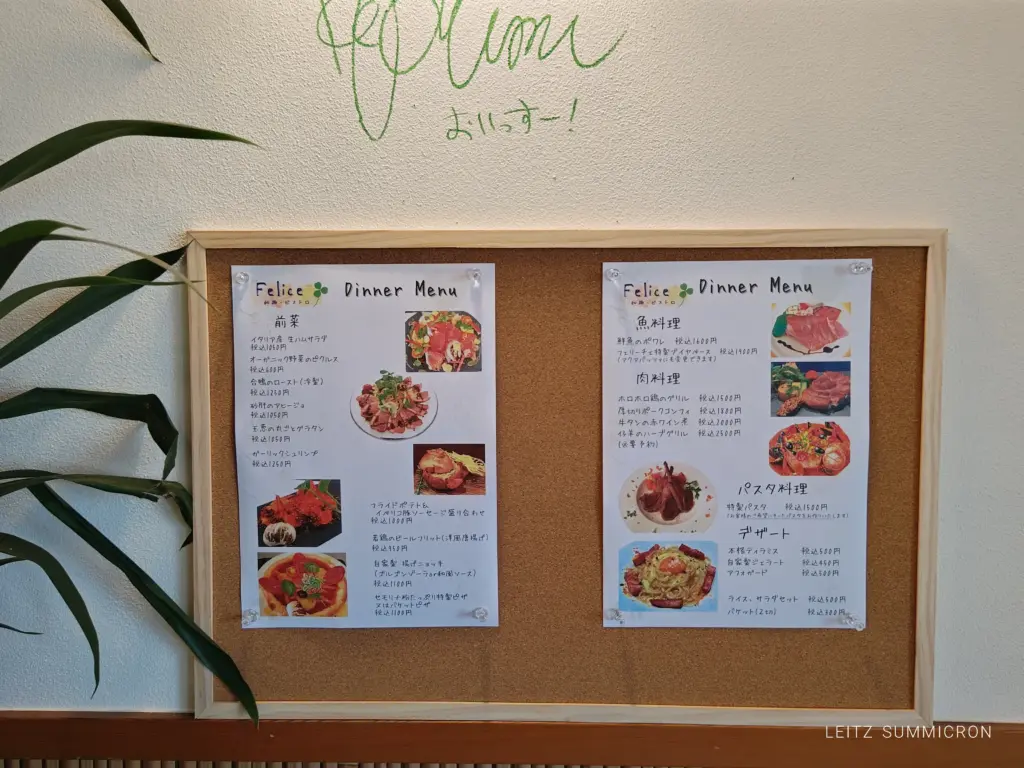 おいっすー!
Felice
Dinner Menu
前菜
イタリア産 生ハムサラダ
税込1050円
オーガニック野菜のピクルス
税込600円
合鴨のロースト(冷製)
税込1250円
砂肝のアヒージョ
税込1050円
玉葱の丸ごとグラタン
税込1050円
ガーリックシュリンプ
税込1260円
フライドポテト&
イベリコ豚ソーセージ盛り合わせ
税込1000円
若鶏のビールフリット(洋風唐揚げ)
税込950円
自家製 揚げニョッキ
(ゴルゴンゾーラor和風ソース)
税込1100円
セモリナ粉たっぷり特製ピザ
又はバケットピザ
税込1300円
Felice
Dinner Menu
魚料理
鮮魚のポワレ 税込1600円
フェリーチェ特製ブイヤベース 税込1900円
(アクアパッツァにも変更できます)
肉料理
ホロホロ鶏のグリル 税込1500円
厚切りポークコンフィ 税込1800円
牛タンの赤ワイン煮 税込2000円
仔羊のハーブグリル 税込2500円
(要予約)
パスタ料理
特製パスタ 税込1500円
デザート
本格ティラミス 税込500円
自家製ジェラート 税込450円
アフォガード 税込500円
ライス、サラダセット 税込500円
バケット(2切) 税込300円
LEITZ SUMMICRON